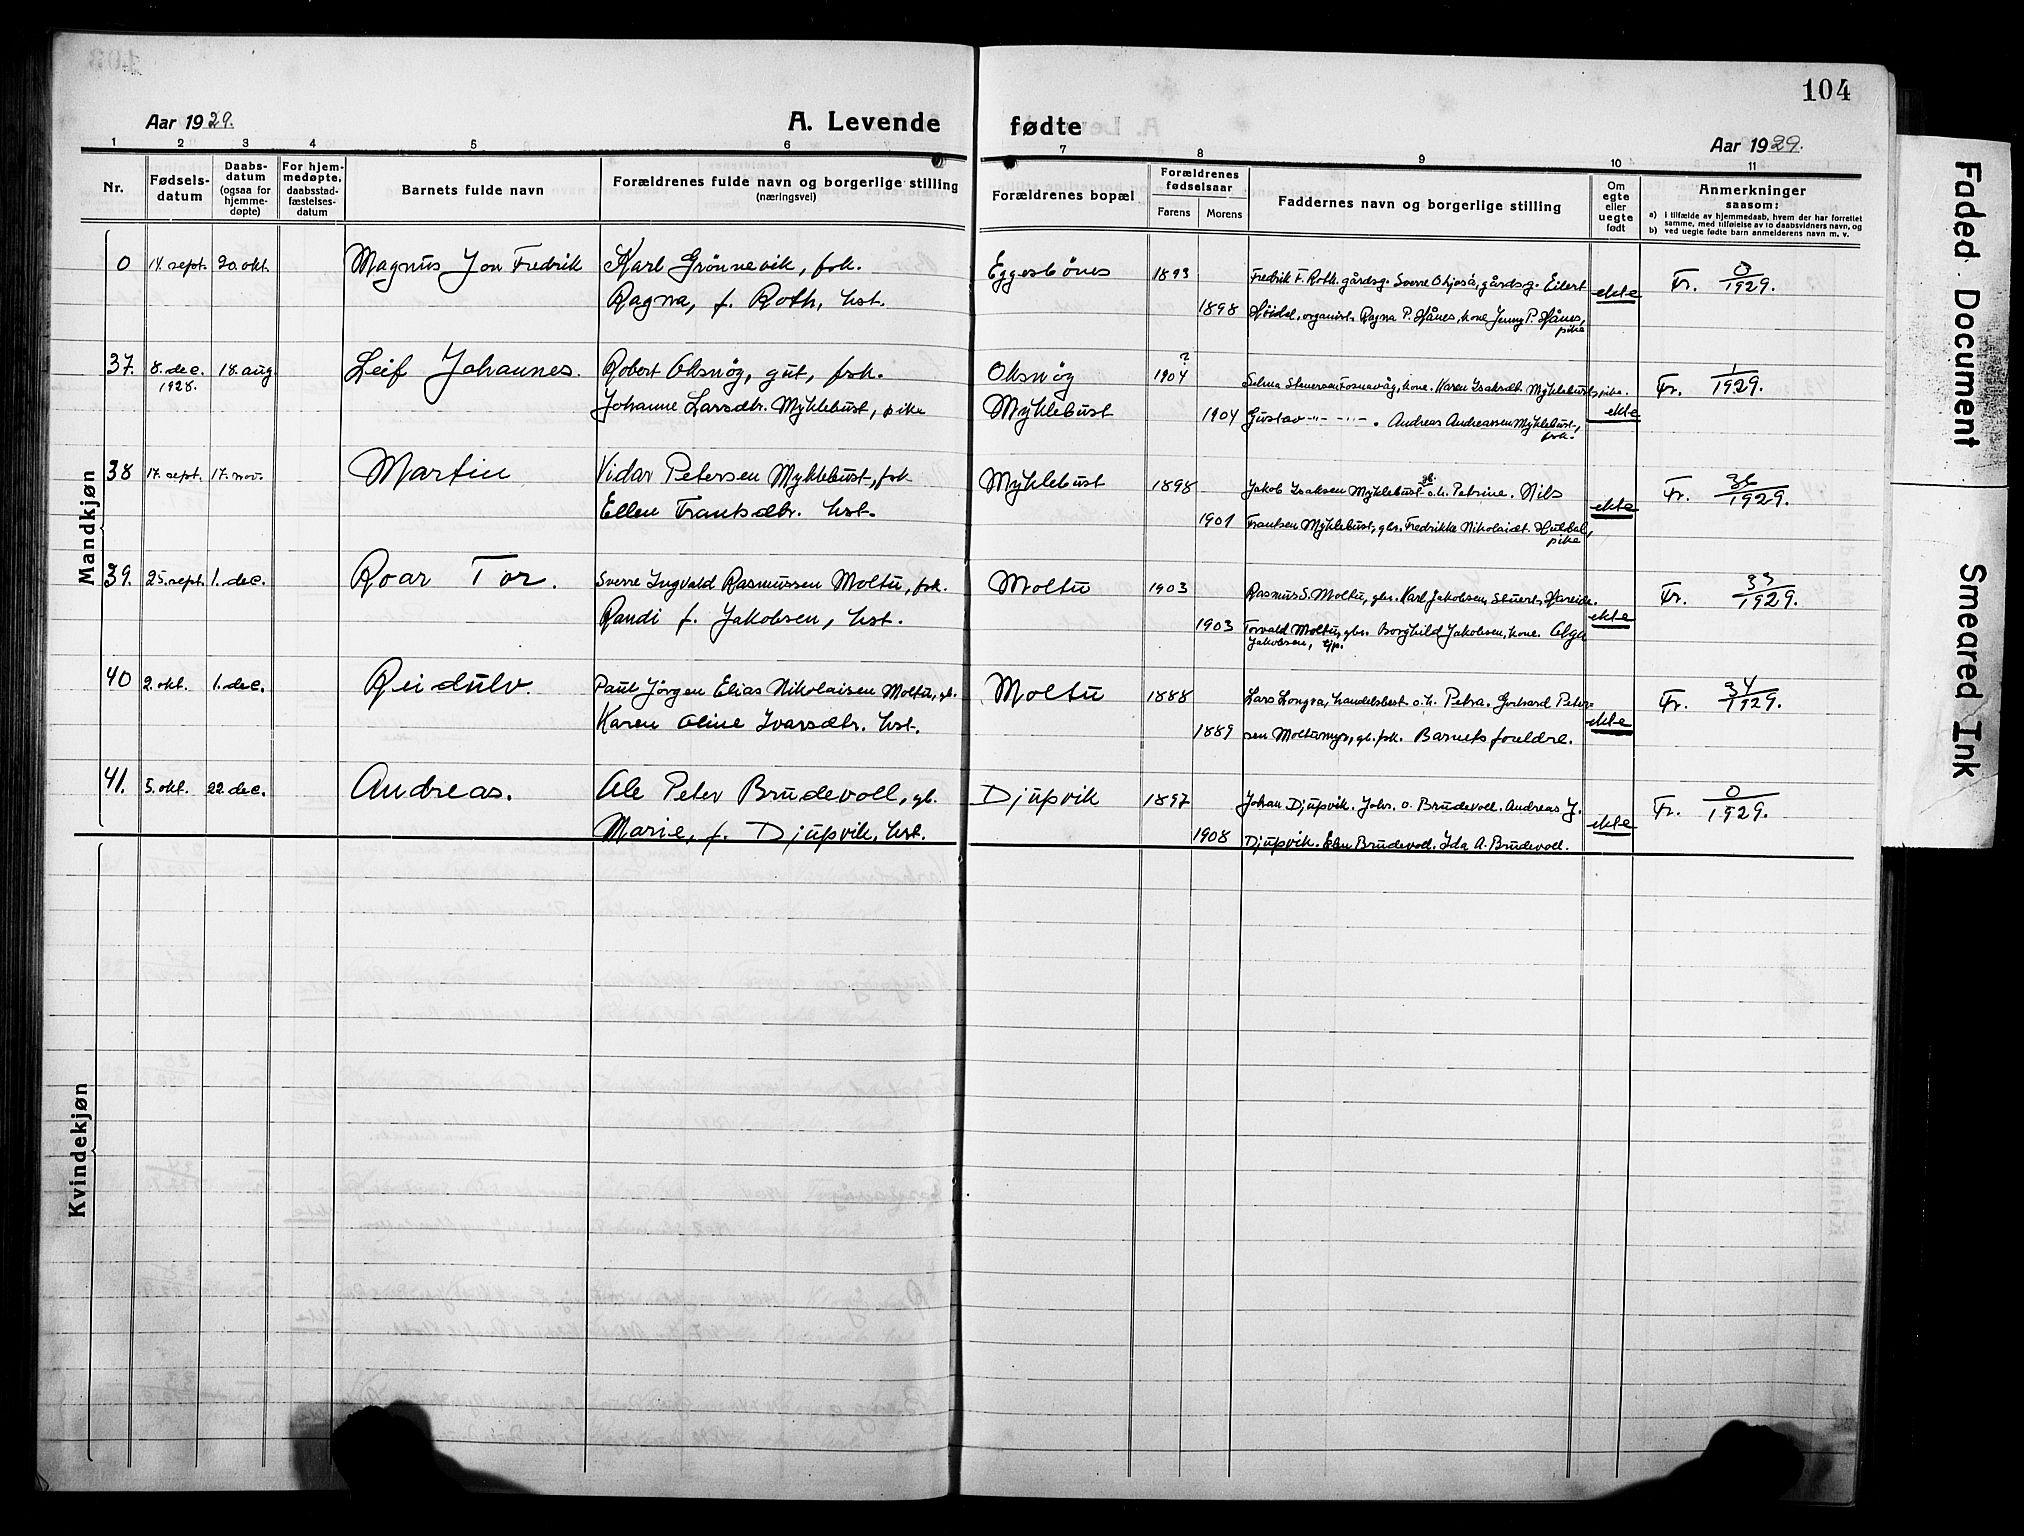 104
Aar 1929.
A. Levende fødte
Aar 1929.
1 2 3 4 5 6 7 8 9 10 11
Nr.
Fødsels-
datum
Daabs-
datum
(ogsaa for
hjemme-
døpte)
For hjem-
medøpte,
daabsstad-
fæstelses-
datum
Barnets fulde navn
Forældrenes fulde navn og borgerlige stilling
(næringsvei)
Forældrenes bopæl
Forældrenes
fødselsaar
Farens Morens
Faddernes navn og borgerlige stilling
Om
egte
eller
uegte
født
Anmerkninger
saasom:
a) I tilfælde av hjemmedaab, hvem der har forrettet
samme, med tilføielse av to daabsvidners navn, og
b) ved uegte fødte barn anmelderens navn m. v.
Mandkjøn
0 14 sept. 20. okt. Magnus Jon Fredrik Karl Grønnevik, fsk. Eggesbönes 1893 Fredrik F. Roth. gårdsg. Sverre gårdsg. Eilert ekte Fr. 0/1929.
Ragna, f. Roth, hst. 1898 organist. Ragna P. Hånes, kone Jenny P. Hånes,
pike
37. 8. dec. 1928. 18. aug Leif Johannes. Robert Oksnög, gut, fsk. Oksnög ? 1904 Selma Fosnavåg, kone. Karen Isaksdt. Myklebust, pike. Fr. 1/1929.
Johanne Larsdtr. Myklebust, pike Myklebust 1904 Gustav -"- -"-. Andreas Andreassen Myklebust, ekte
fsk.
38 17. sept. 17. nov. Martin Vidar Petersen Myklebust, fsk Myklebust 1898 Jakob Isaksen Myklebust gb. o. h. Petrine. Nils ekte Fr. 36/1929.
Ellen Frantsdtr. hst. 1901 Frantsen Myklebust, gbr. Fredrikke Nikolaidt.
pike
39. 25. sept. 1. dec. Roar Tor. Sverre Ingvald Rasmussen Moltu, fsk. Moltu 1903 Rasmus S. Moltu, gbr. Karl Jakobsen, stuert, Hareide. ekte Fr. 33/1929.
Randi f. Jakobsen, hst. 1903 Torvald Moltu, gbr. Borghild Jakobsen, kone. Olga
Jakobsen,
40 2. okt. 1. dec. Reidulv. Paul Jörgen Elias Nikolaisen Moltu, gb. Moltu 1888 Lars Longva, handelsbest. o. h. Petra. Gerhard Peter- ekte Fr. 34/1929.
Karen Oline Ivarsdtr. hst. 1889 sen Moltumyr, gb. fsk. Barnets foreldre.
41. 5. okt. 22 dec. Andreas. Ole Peter Brudevoll, gb. Djupvik 1897 Johan Djupvik. Johs. O. Brudevoll. Andreas J. ekte Fr. 0/1929.
Marie, f. Djupvik, hst. 1908 Djupvik. Brudevoll. Ida A. Brudevoll.
Kvindekjøn
Faded Document
Smeared Ink